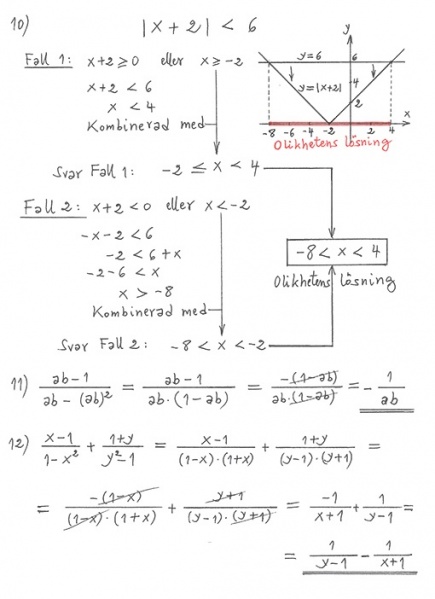 10) |x + 2| < 6
Fall 1: x+2 ≥ 0 eller x ≥ -2
x+2 < 6
x < 4
Kombinerad med
y
y=6
6
y=|x+2|
4
2
x
-8 -6 -4 -2 2 4
Olikhetens lösning
Svar Fall 1: -2 ≤ x < 4
Fall 2: x+2 < 0 eller x < -2
-x-2 < 6
-2 < 6+x
-2-6 < x
x > -8
Kombinerad med
-8 < x < 4
Olikhetens lösning
Svar Fall 2: -8 < x < -2
11) (ab-1)/(ab-(ab)²) = (ab-1)/(ab·(1-ab)) = (-(1-ab))/(ab·(1-ab)) = -1/(ab)
12) (x-1)/(1-x²) + (1+y)/(y²-1) = (x-1)/((1-x)·(1+x)) + (1+y)/((y-1)·(y+1)) =
= (-(1-x))/((1-x)·(1+x)) + (y+1)/((y-1)·(y+1)) = (-1)/(x+1) + 1/(y-1) =
= 1/(y-1) - 1/(x+1)